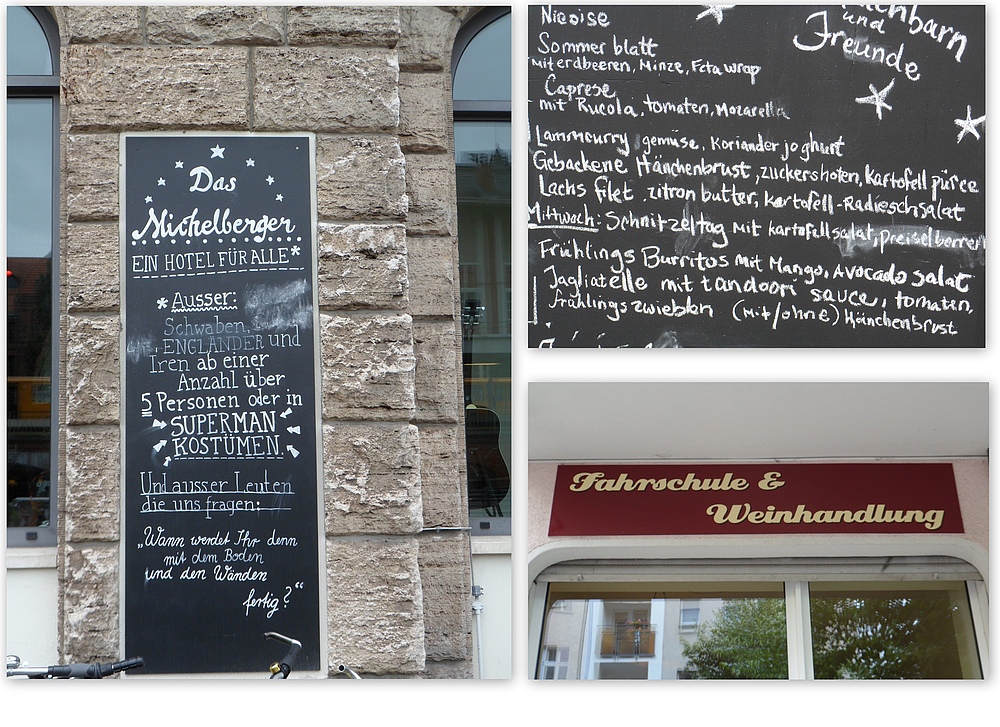 Das
Michelberger
EIN HOTEL FÜR ALLE*
*Ausser:
Schwaben,
ENGLÄNDER und
Iren ab einer
Anzahl über
5 Personen oder in
SUPERMAN
KOSTÜMEN.
Und ausser Leuten
die uns fragen:
„Wann werdet Ihr denn
mit dem Boden
und den Wänden
fertig?“
und
Freunde
Nicoise
Sommer blatt
mit erdbeeren, Minze, Feta wrap
Caprese
mit Rucola, tomaten, Mozarella
Lammcurry gemüse, Koriander joghurt
Gebackene Hänchenbrust, zuckershoten, Kartofell pürce
Lachs filet zitron butter, kartofell-Radieschsalat
Mittwoch: Schnitzeltag mit kartofelsalat, Preiselberren
Frühlings Burritos mit Mango, Avocado salat
Tagliatelle mit tandoori sauce, tomaten,
frühlings zwiebeln (mit/ohne) Hänchenbrust
Fahrschule &
Weinhandlung